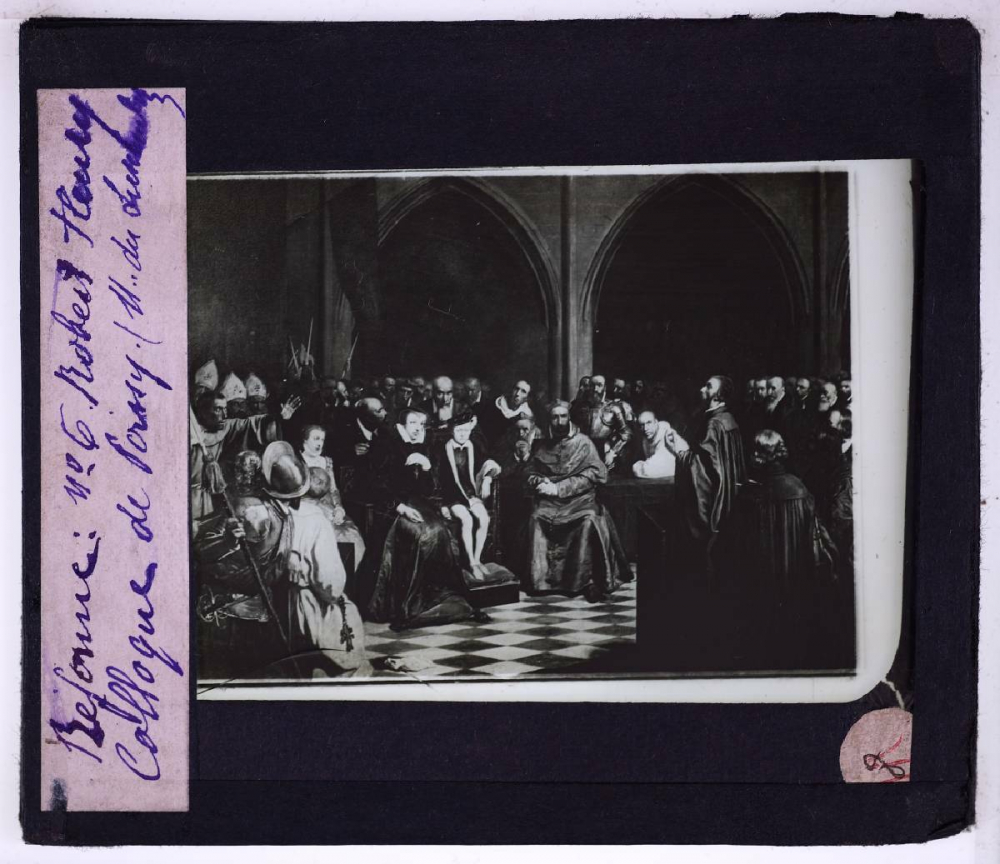 Reforme: nº 6 Robert Fleury
Colloque de Poissy. (M. du Luxembg
8